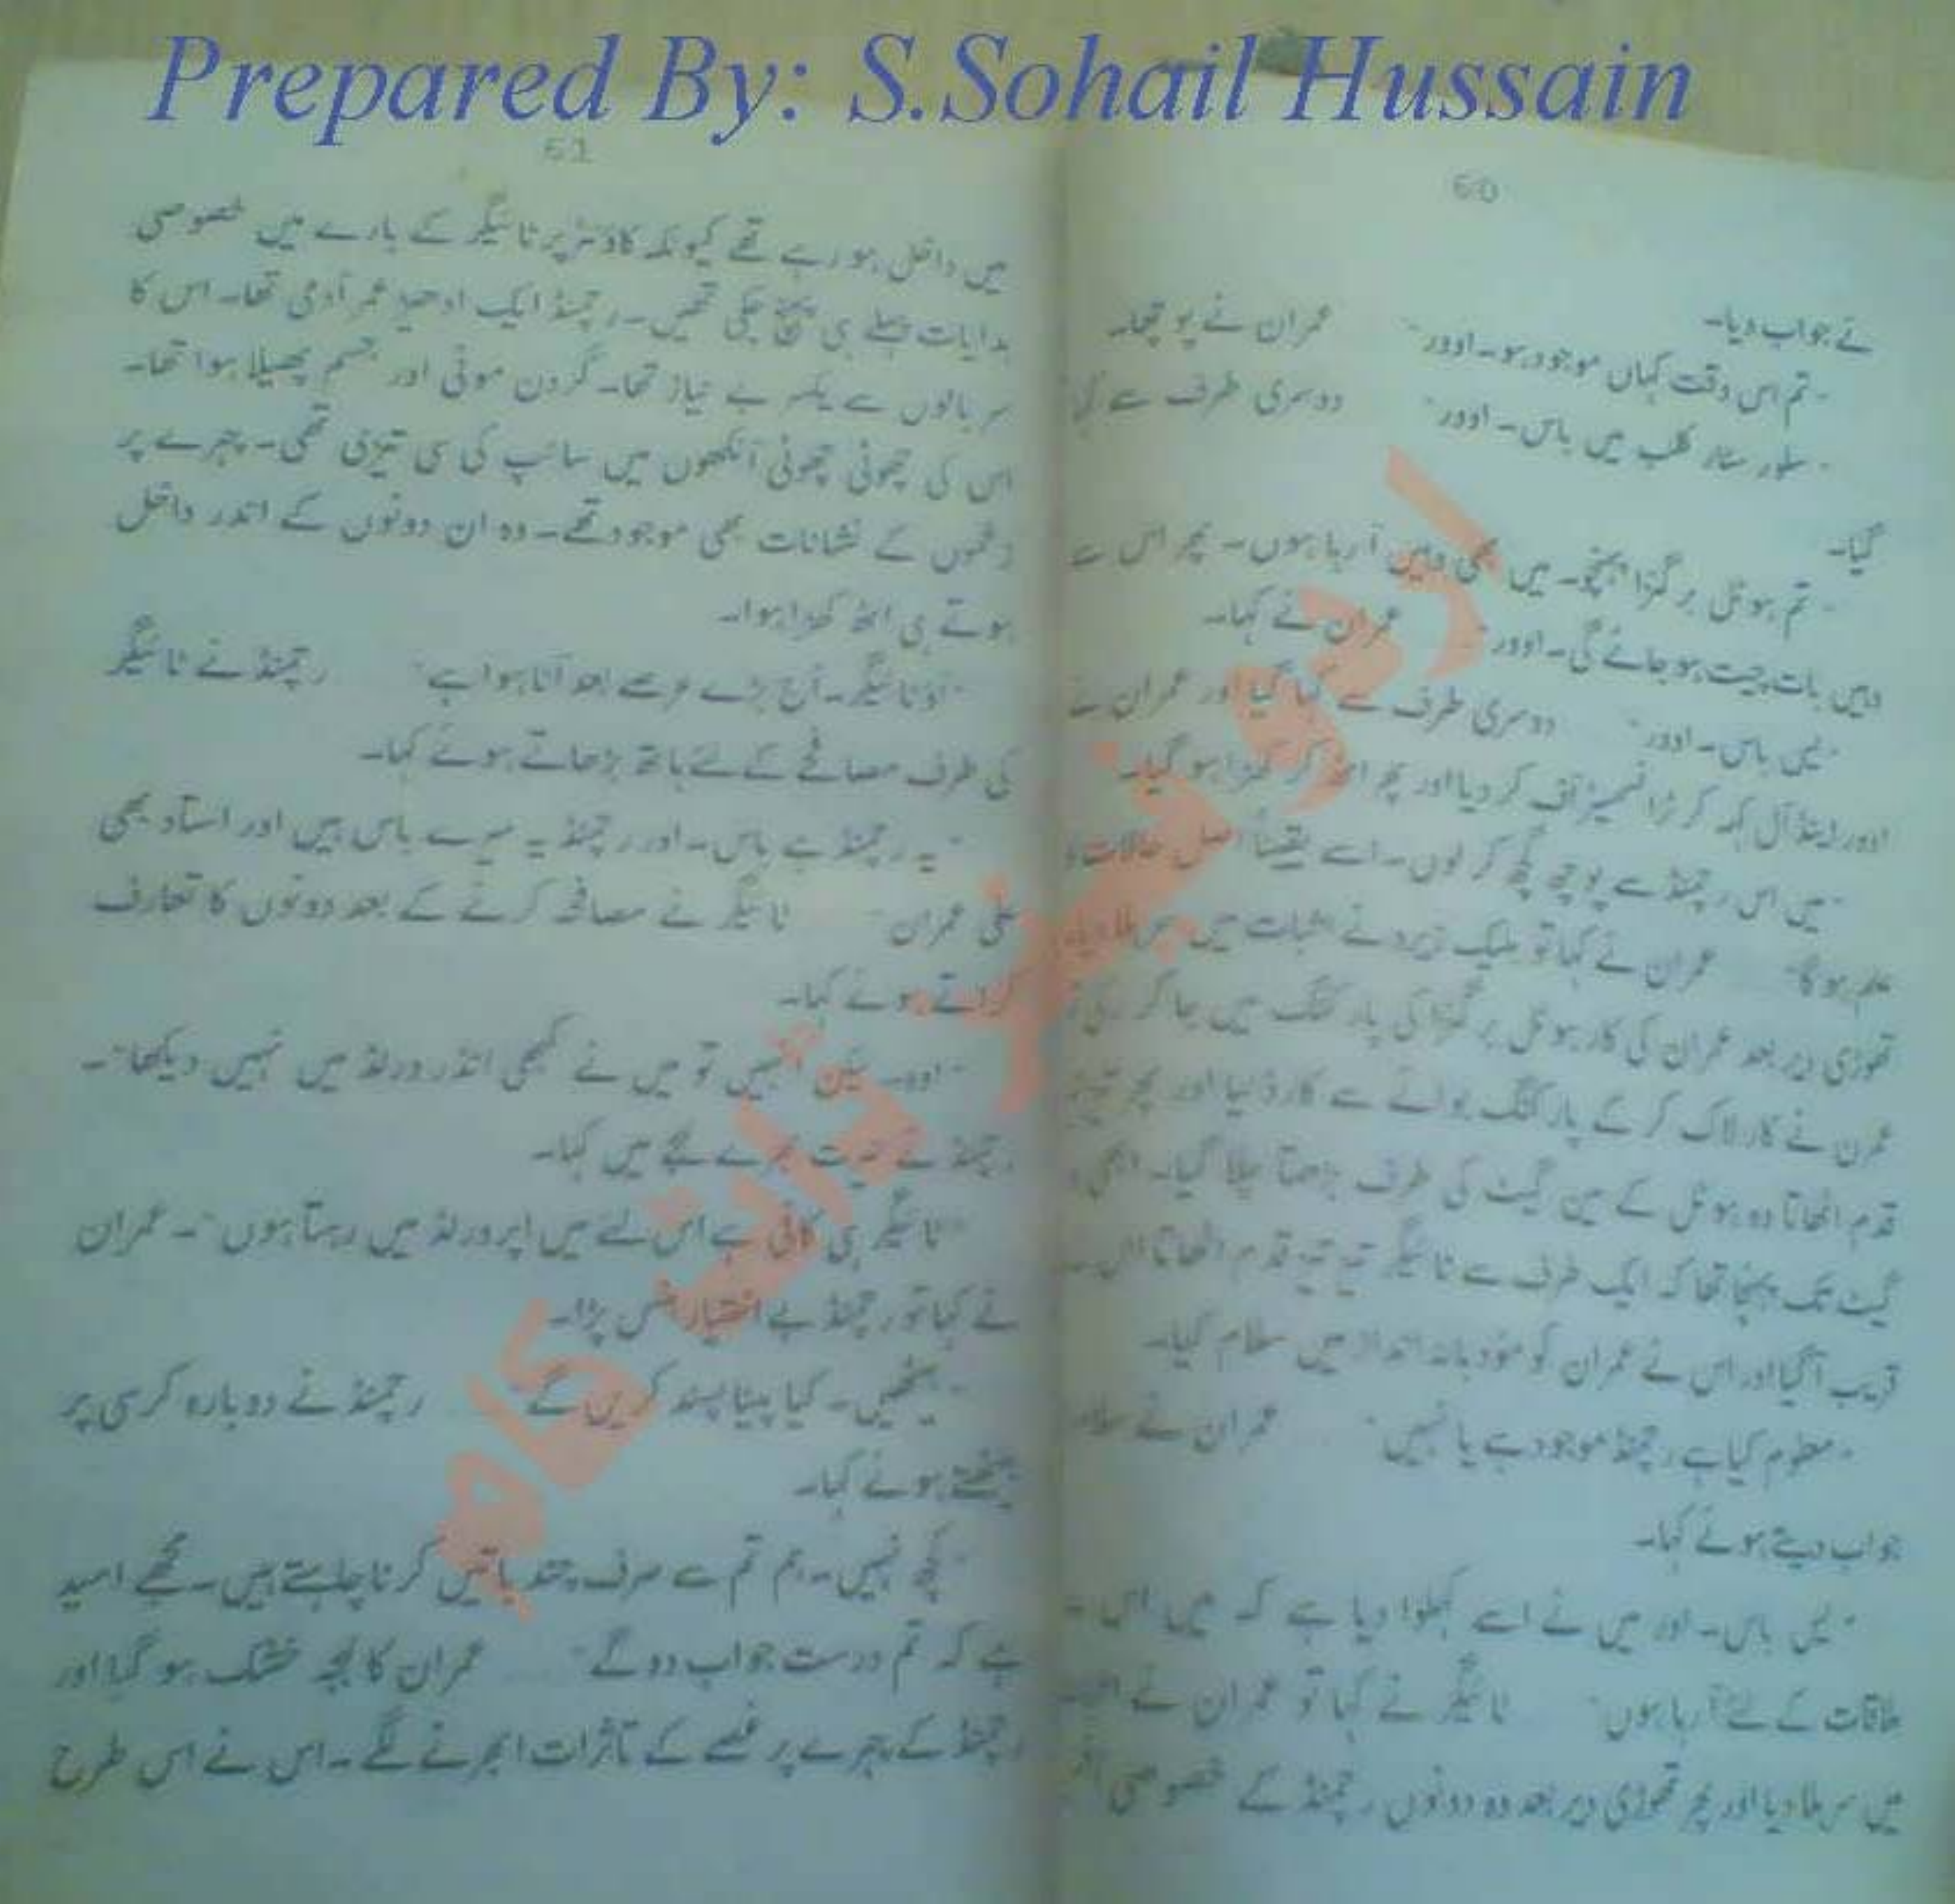 Prepared By: S.Sohail Hussain
60
نے جواب دیا۔
"تم اس وقت کہاں موجود ہو۔ اوور" عمران نے پوچھا۔
"سلور سٹار کلب میں باس۔ اوور" دوسری طرف سے کہا
گیا۔
"تم ہوٹل برگنزا پہنچو۔ میں بھی وہیں آ رہا ہوں۔ پھر اس سے
وہیں بات چیت ہو جائے گی۔ اوور" عمران نے کہا۔
"یس باس۔ اوور" دوسری طرف سے کہا گیا اور عمران نے
اوور اینڈ آل کہہ کر ٹرانسمیٹر آف کر دیا اور پھر اٹھ کر کھڑا ہو گیا۔
"میں اس رچمنڈ سے پوچھ گچھ کر لوں۔ اسے یقیناً اصل حالات کا
علم ہو گا" عمران نے کہا تو بلیک زیرو نے اثبات میں سر ہلا دیا۔
تھوڑی دیر بعد عمران کی کار ہوٹل برگنزا کی پارکنگ میں جا کر رکی تو
عمرن نے کار لاک کر کے پارکنگ بوائے سے کارڈ لیا اور پھر تیز تیز
قدم اٹھاتا وہ ہوٹل کے مین گیٹ کی طرف بڑھتا چلا گیا۔ ابھی وہ
گیٹ تک پہنچا تھا کہ ایک طرف سے ٹائیگر تیز تیز قدم اٹھاتا اس کے
قریب آ گیا اور اس نے عمران کو مؤدبانہ انداز میں سلام کیا۔
"معلوم کیا ہے رچمنڈ موجود ہے یا نہیں" عمران نے سلام
جواب دیتے ہوئے کہا۔
"یس باس۔ اور میں نے اسے کہلوا دیا ہے کہ میں اس سے
ملاقات کے لئے آ رہا ہوں" ٹائیگر نے کہا تو عمران نے
میں سر ہلا دیا اور پھر تھوڑی دیر بعد وہ دونوں رچمنڈ کے خصوصی
61
میں داخل ہو رہے تھے کیونکہ کاؤنٹر پر ٹائیگر کے بارے میں خصوصی
ہدایات پہلے ہی پہنچ چکی تھیں۔ رچمنڈ ایک ادھیڑ عمر آدمی تھا۔ اس کا
سر بالوں سے یکسر بے نیاز تھا۔ گردن موٹی اور جسم پھیلا ہوا تھا۔
اس کی چھوٹی چھوٹی آنکھوں میں سانپ کی سی تیزی تھی۔ چہرے پر
زخموں کے نشانات بھی موجود تھے۔ وہ ان دونوں کے اندر داخل
ہوتے ہی اٹھ کھڑا ہوا۔
"آؤ ٹائیگر۔ آج بڑے عرصے بعد آنا ہوا ہے" رچمنڈ نے ٹائیگر
کی طرف مصافحے کے لئے ہاتھ بڑھاتے ہوئے کہا۔
"یہ رچمنڈ ہے باس۔ اور رچمنڈ یہ میرے باس ہیں اور استاد بھی
علی عمران" ٹائیگر نے مصافحہ کرنے کے بعد دونوں کا تعارف
کراتے ہوئے کہا۔
"اوہ۔ لیکن انہیں تو میں نے کبھی انڈر ورلڈ میں نہیں دیکھا"۔
رچمنڈ نے حیرت بھرے لہجے میں کہا۔
"ٹائیگر ہی کافی ہے اس لئے میں اپر ورلڈ میں رہتا ہوں"۔ عمران
نے کہا تو رچمنڈ بے اختیار ہنس پڑا۔
"بیٹھیں۔ کیا پینا پسند کریں گے" رچمنڈ نے دوبارہ کرسی پر
بیٹھتے ہوئے کہا۔
"کچھ نہیں۔ ہم تم سے صرف چند باتیں کرنا چاہتے ہیں۔ مجھے امید
ہے کہ تم درست جواب دو گے" عمران کا لہجہ خشک ہو گیا اور
رچمنڈ کے چہرے پر غصے کے تاثرات ابھرنے لگے۔ اس نے اس طرح
اردو فینز ڈاٹ کام